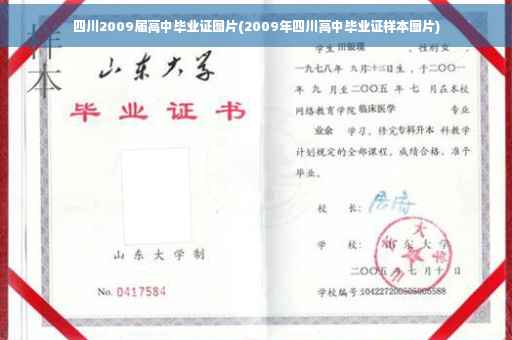 四川2009届高中毕业证图片(2009年四川高中毕业证样本图片)
样本
山东大学
毕业证书
山东大学制
No. 0417584
学生 田银瑛 ，性别女，
一九七八年 九月十三日生，于二〇〇一
年 九 月至二〇〇五 年 七 月在本校
网络教育学院 临床医学 专业
业余 学习，修完专科升本 科教学
计划规定的全部课程，成绩合格，准予
毕业。
校 长：
学 校： 山东大学
二〇〇五 年 七 月 十 日
学校编号:104227200505005588